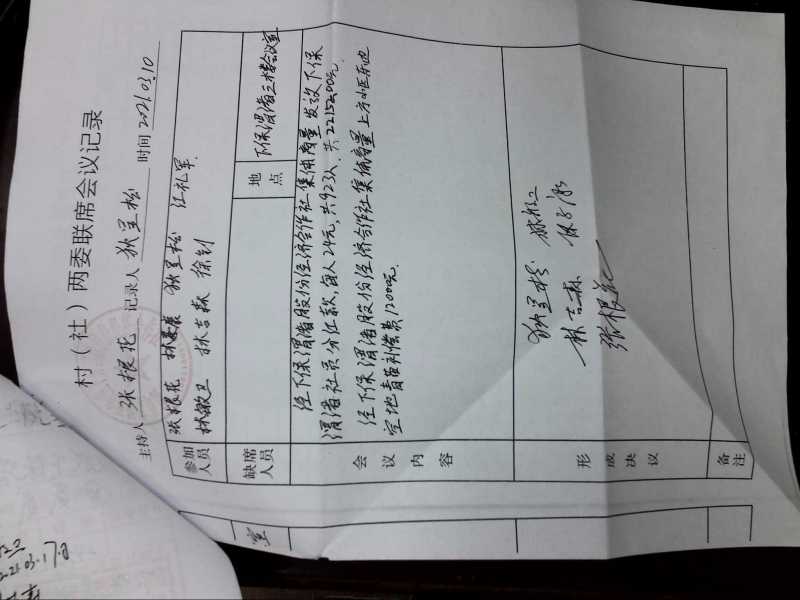 村（社）两委联席会议记录
主持人 张根花 记录人 狄呈松 时间 2021.03.10
参加人员
张根花 狄呈松 江礼军.
林敏卫 林吉森 徐钊
缺席人员
地点
下保渭渚三楼会议室
会议内容
经下保渭渚股份经济合作社集体商量 发放下保
渭渚社员分红款,每人24元,共923人.共22152.00元.
经下保渭渚股份经济合作社集体商量 上方小区东边
空地青苗补偿费12000元.
形成决议
狄呈松
林吉森
张根花
备注
室
2021.03.17日